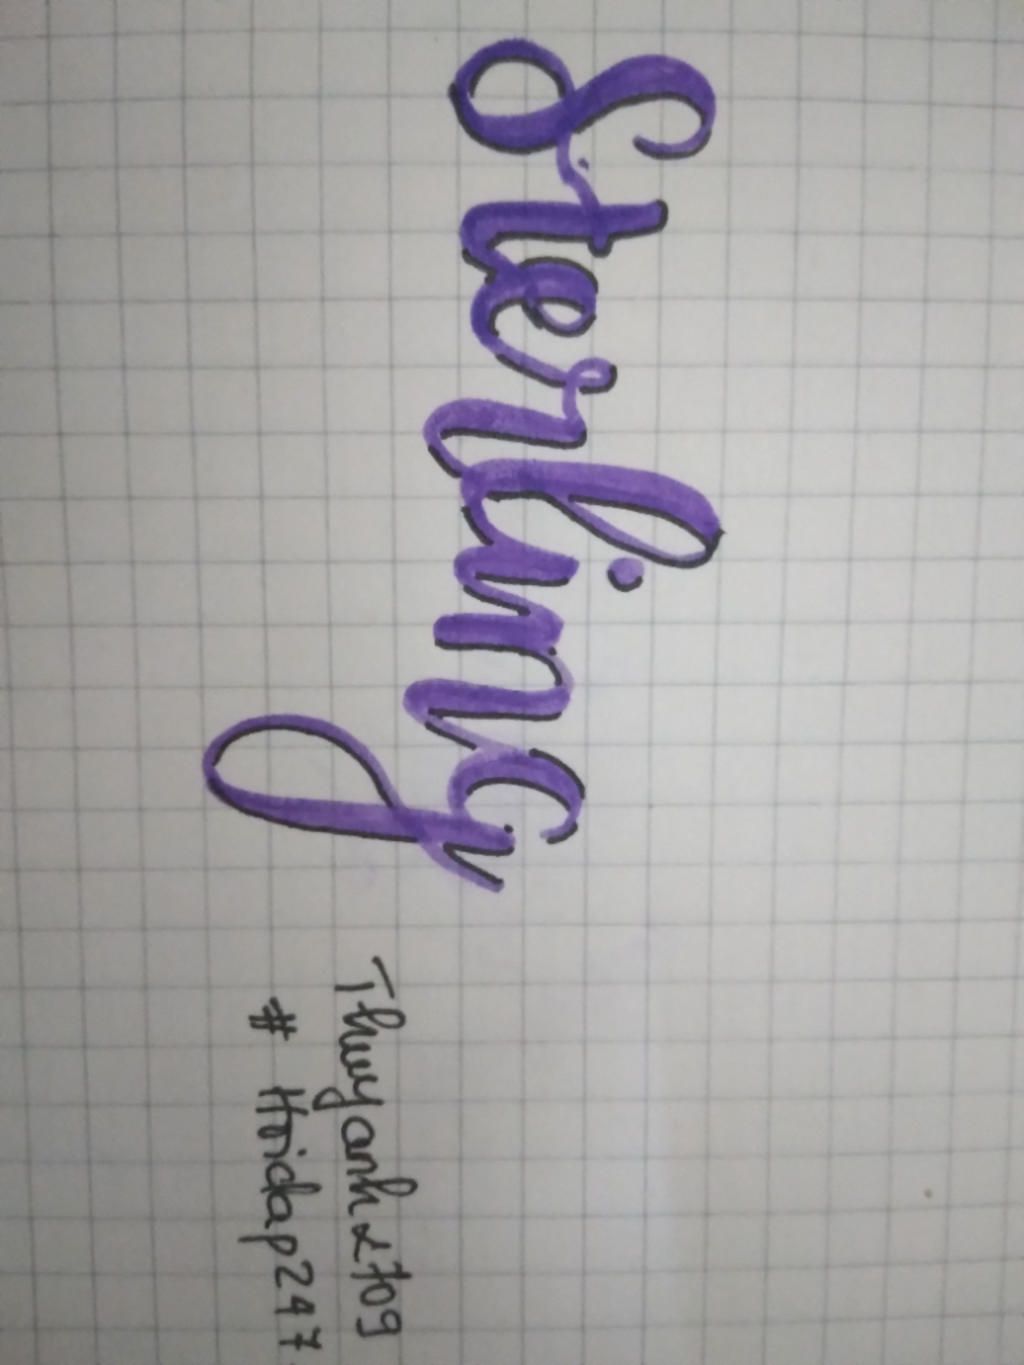 Sterling
Thuyanh2709
# Hoidap247